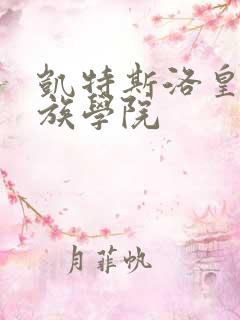 凱特斯洛皇
族學院
月菲帆